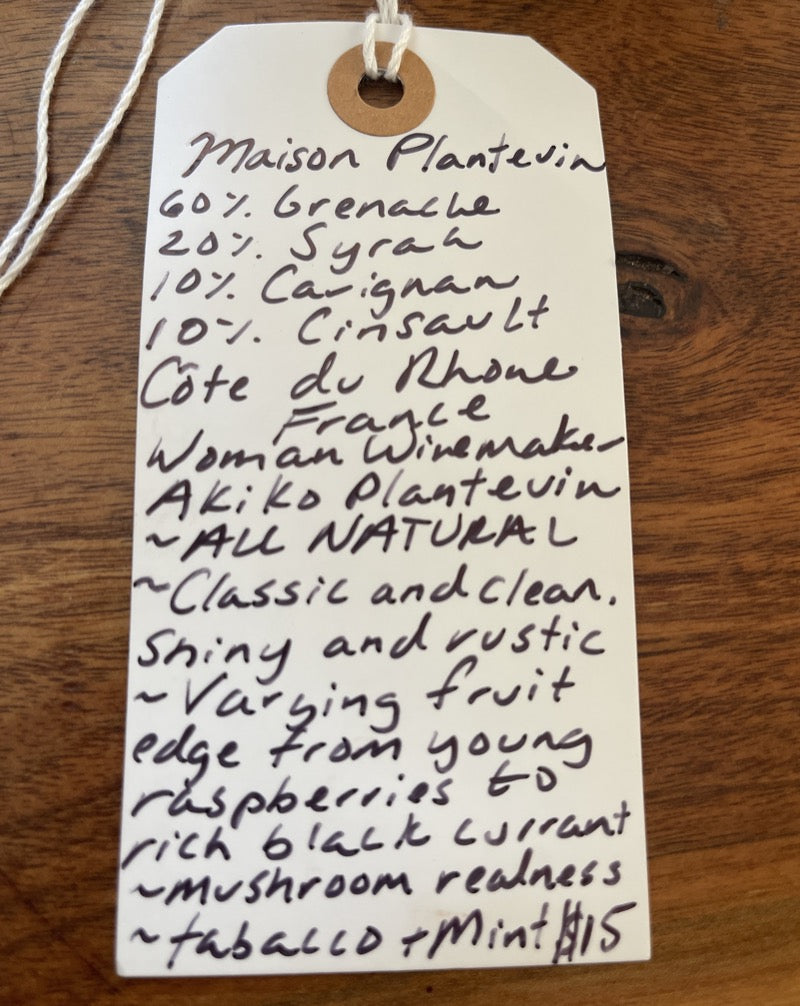 Maison Plantevin
60% Grenache
20% Syrah
10% Carignan
10% Cinsault
Côte du Rhone
France
Woman Winemaker
Akiko Plantevin
~ALL NATURAL
~Classic and clean.
Shiny and rustic
~Varying fruit
edge from young
raspberries to
rich black currant
~mushroom realness
~tabacco + Mint $15